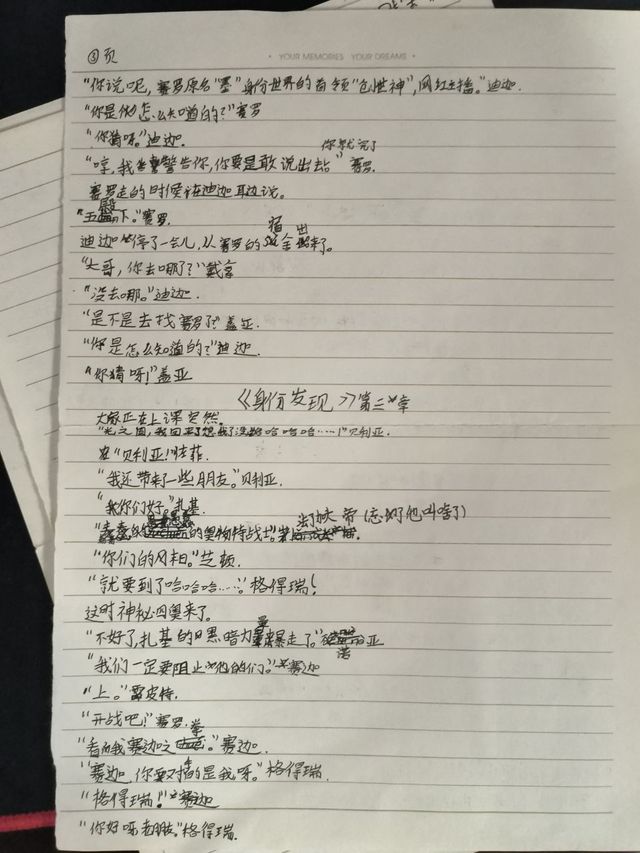 ③页
· YOUR MEMORIES YOUR DREAMS ·
"你说呢，赛罗原名"墨"身份世界的首领"创世神"，网红主播。"迪迦.
"你是怎么知道的？"赛罗
"你猜呀。"迪迦.
"哼，我警告你，你要是敢说出去。你就完了"赛罗.
赛罗走的时候迪迦耳边说。
"王殿下。"赛罗.
迪迦停了一会儿，从赛罗的宿舍出来了。
"大哥，你去哪了？"戴拿
"没去哪。"迪迦.
"是不是去找赛罗了？"盖亚.
"你是怎么知道的？"迪迦.
"你猜呀！"盖亚
《身份发现》第三章
大家正在上课突然。
"光之国，我回来了想我了没哈哈哈……！"贝利亚.
"贝利亚！"佐菲.
"我还带来了一些朋友。"贝利亚.
"你们好。"扎基
"的奥特战士。"大帝(忘了他叫啥了)
"你们的风"芝顿.
"就要到了哈哈哈……"格得瑞！
这时神秘四奥来了。
"不好了，扎基的黑暗力量暴走了。"诺亚
"我们一定要阻止他们。"赛迦
"上。"雷皮特.
"开战吧！"赛罗.
"看我赛迦之拳。"赛迦.
"赛迦你要对擂的是我呀。"格得瑞.
"格得瑞！"赛迦
"你好呀老朋友。"格得瑞.